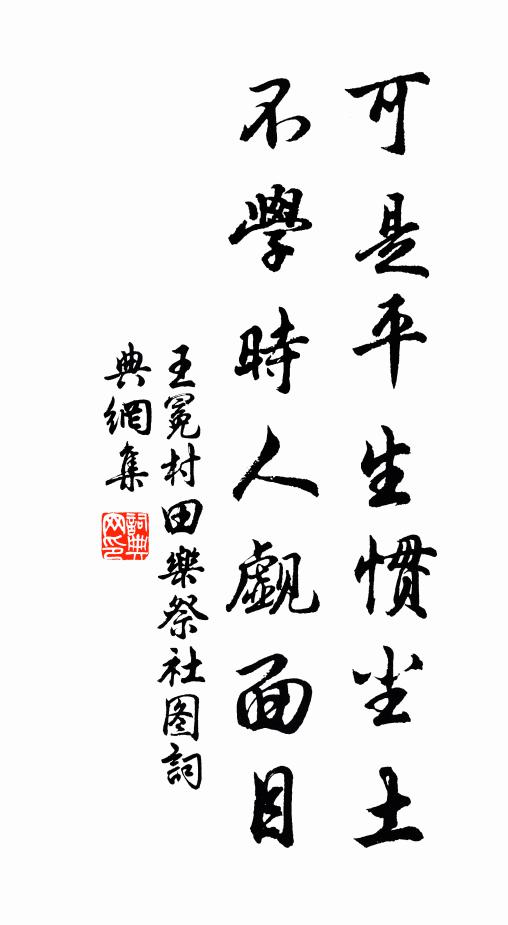 可是平生慣尘土
不學時人覷面目
王冕村田樂祭社图詞
典網集
詞典
网印